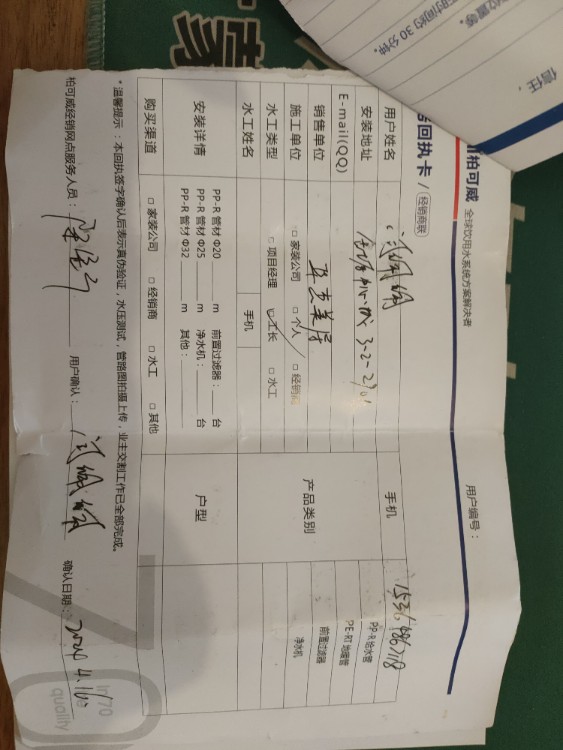 柏可威 全球饮用水系统方案解决者
回执卡 / 经销商联
用户编号：
用户姓名
手机
安装地址 3-2-2901
E-mail(QQ)
销售单位
产品类别
PP-R给水管
PE-RT地暖管
前置过滤器
净水机
施工单位 □ 家装公司 □ 个人 □ 经销商
水工类型 □ 项目经理 工长 □ 水工
水工姓名 手机
安装详情
PP-R 管材 Φ20 m 前置过滤器： 台
PP-R 管材 Φ25 m 净水机： 台
PP-R 管材 Φ32 m 其他：
户型
购买渠道 □ 家装公司 □ 经销商 □ 水工 □ 其他
*温馨提示：本回执签字确认后表示真伪验证，水压测试，管路图拍摄上传，业主交割工作已全部完成。
柏可威经销网点服务人员： 用户确认： 确认日期：2024.4.16
quality
时间约 30 分钟。
位置等。
信任，